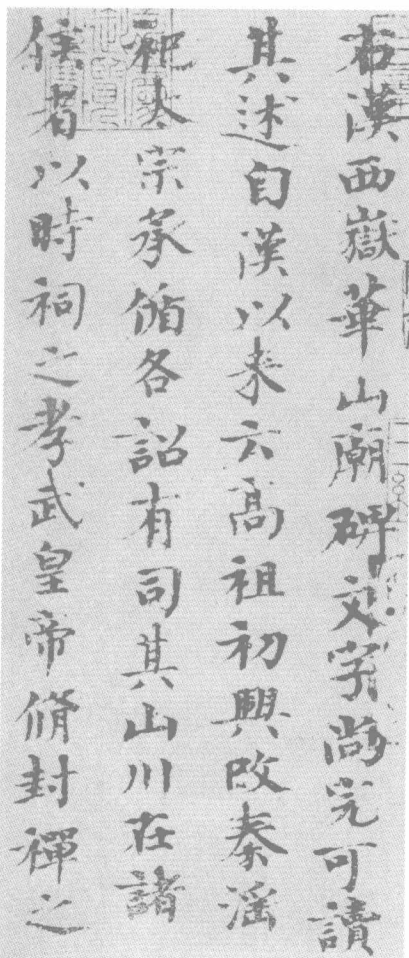 右漢西嶽華山廟碑文字尚完可讀
其述自漢以来云高祖初興改秦淫
祀太宗承循各詔有司其山川在諸
侯者以時祠之孝武皇帝脩封禪之